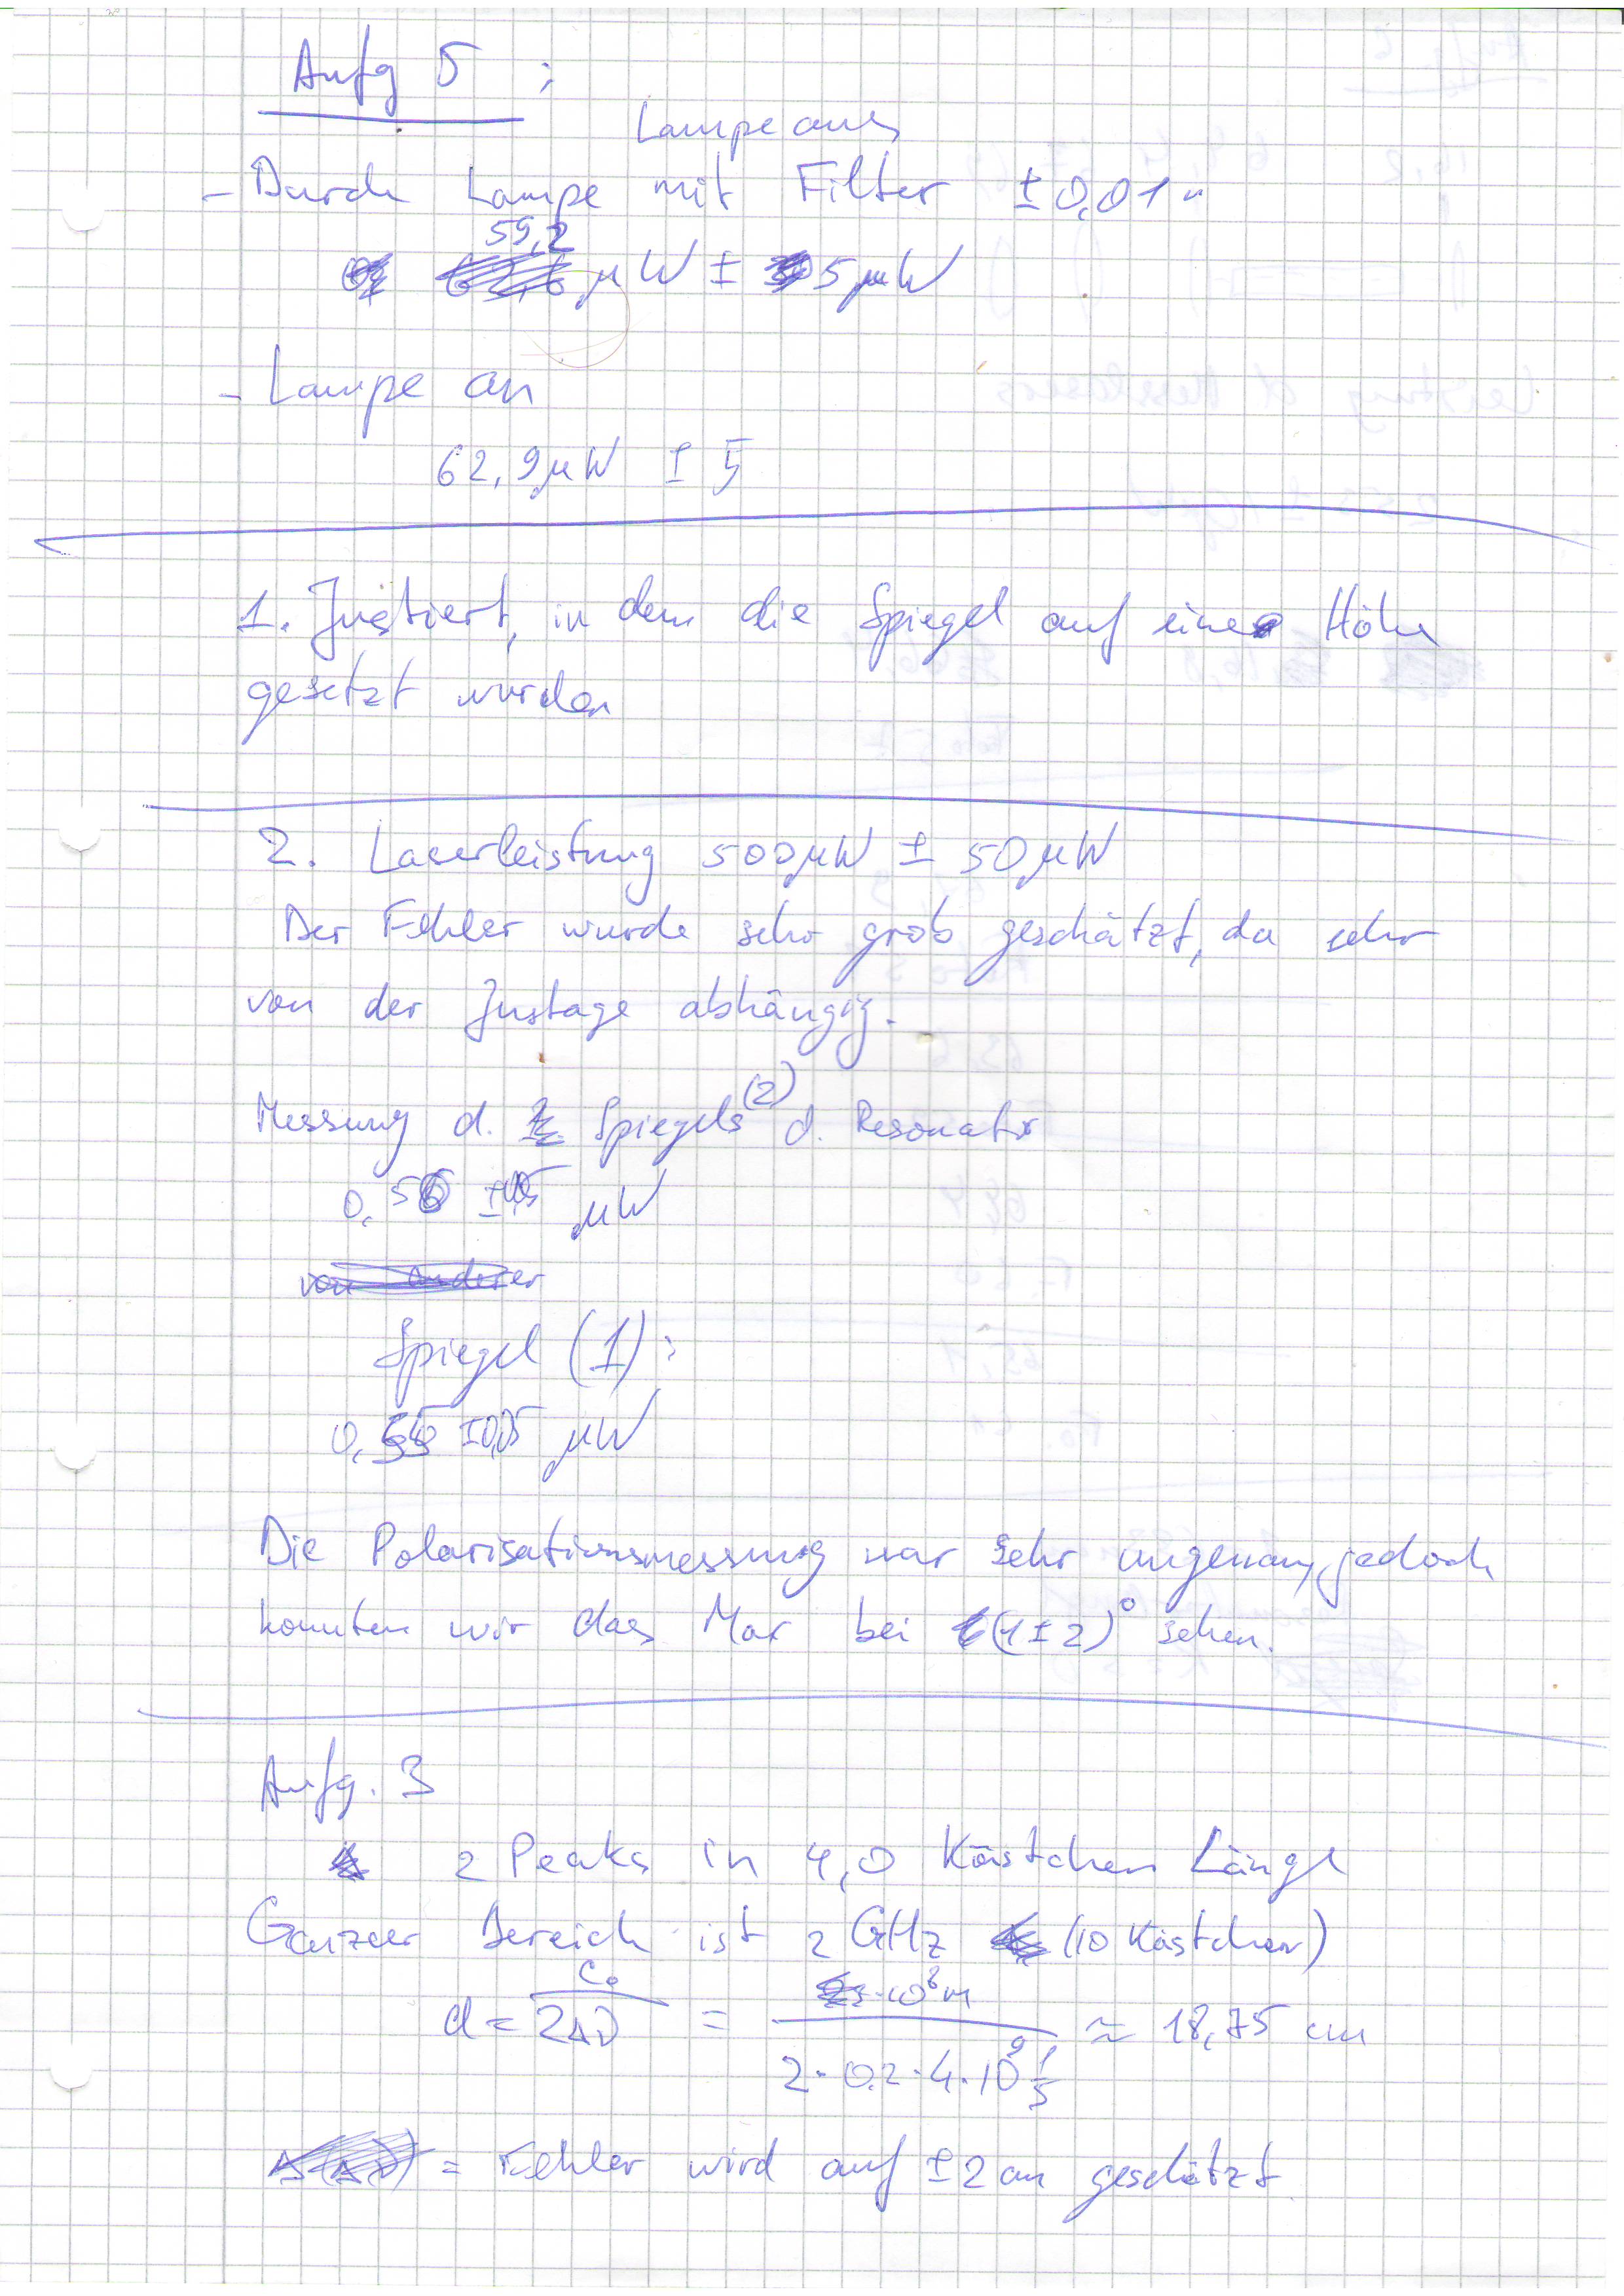 Aufg 5 :
Lampe aus
- Durch Lampe mit Filter ± 0,01
59,2
µW ± 5 µW
- Lampe an
62,9 µW ± 5
1. Justiert, in dem die Spiegel auf eine Höhe
gesetzt wurden
2. Laserleistung 500 µW ± 50 µW
Der Fehler wurde sehr grob geschätzt, da sehr
von der Justage abhängig.
Messung d. Spiegels (2) d. Resonator
0,5 µW
von anderer
Spiegel (1) :
0, ±0,05 µW
Die Polarisationsmessung war sehr ungenau, jedoch
konnten wir das Max bei (1 ± 2)° sehen.
Aufg. 3
2 Peaks in 4,0 Kästchen Länge
Ganzer Bereich ist 2 GHz (10 Kästchen)
d = c₀ / 2Δν = 3·10⁸ m / 2·0,2·4·10⁹ 1/s ≈ 18,75 cm
Δ(Δν) = Fehler wird auf ± 2 cm geschätzt.